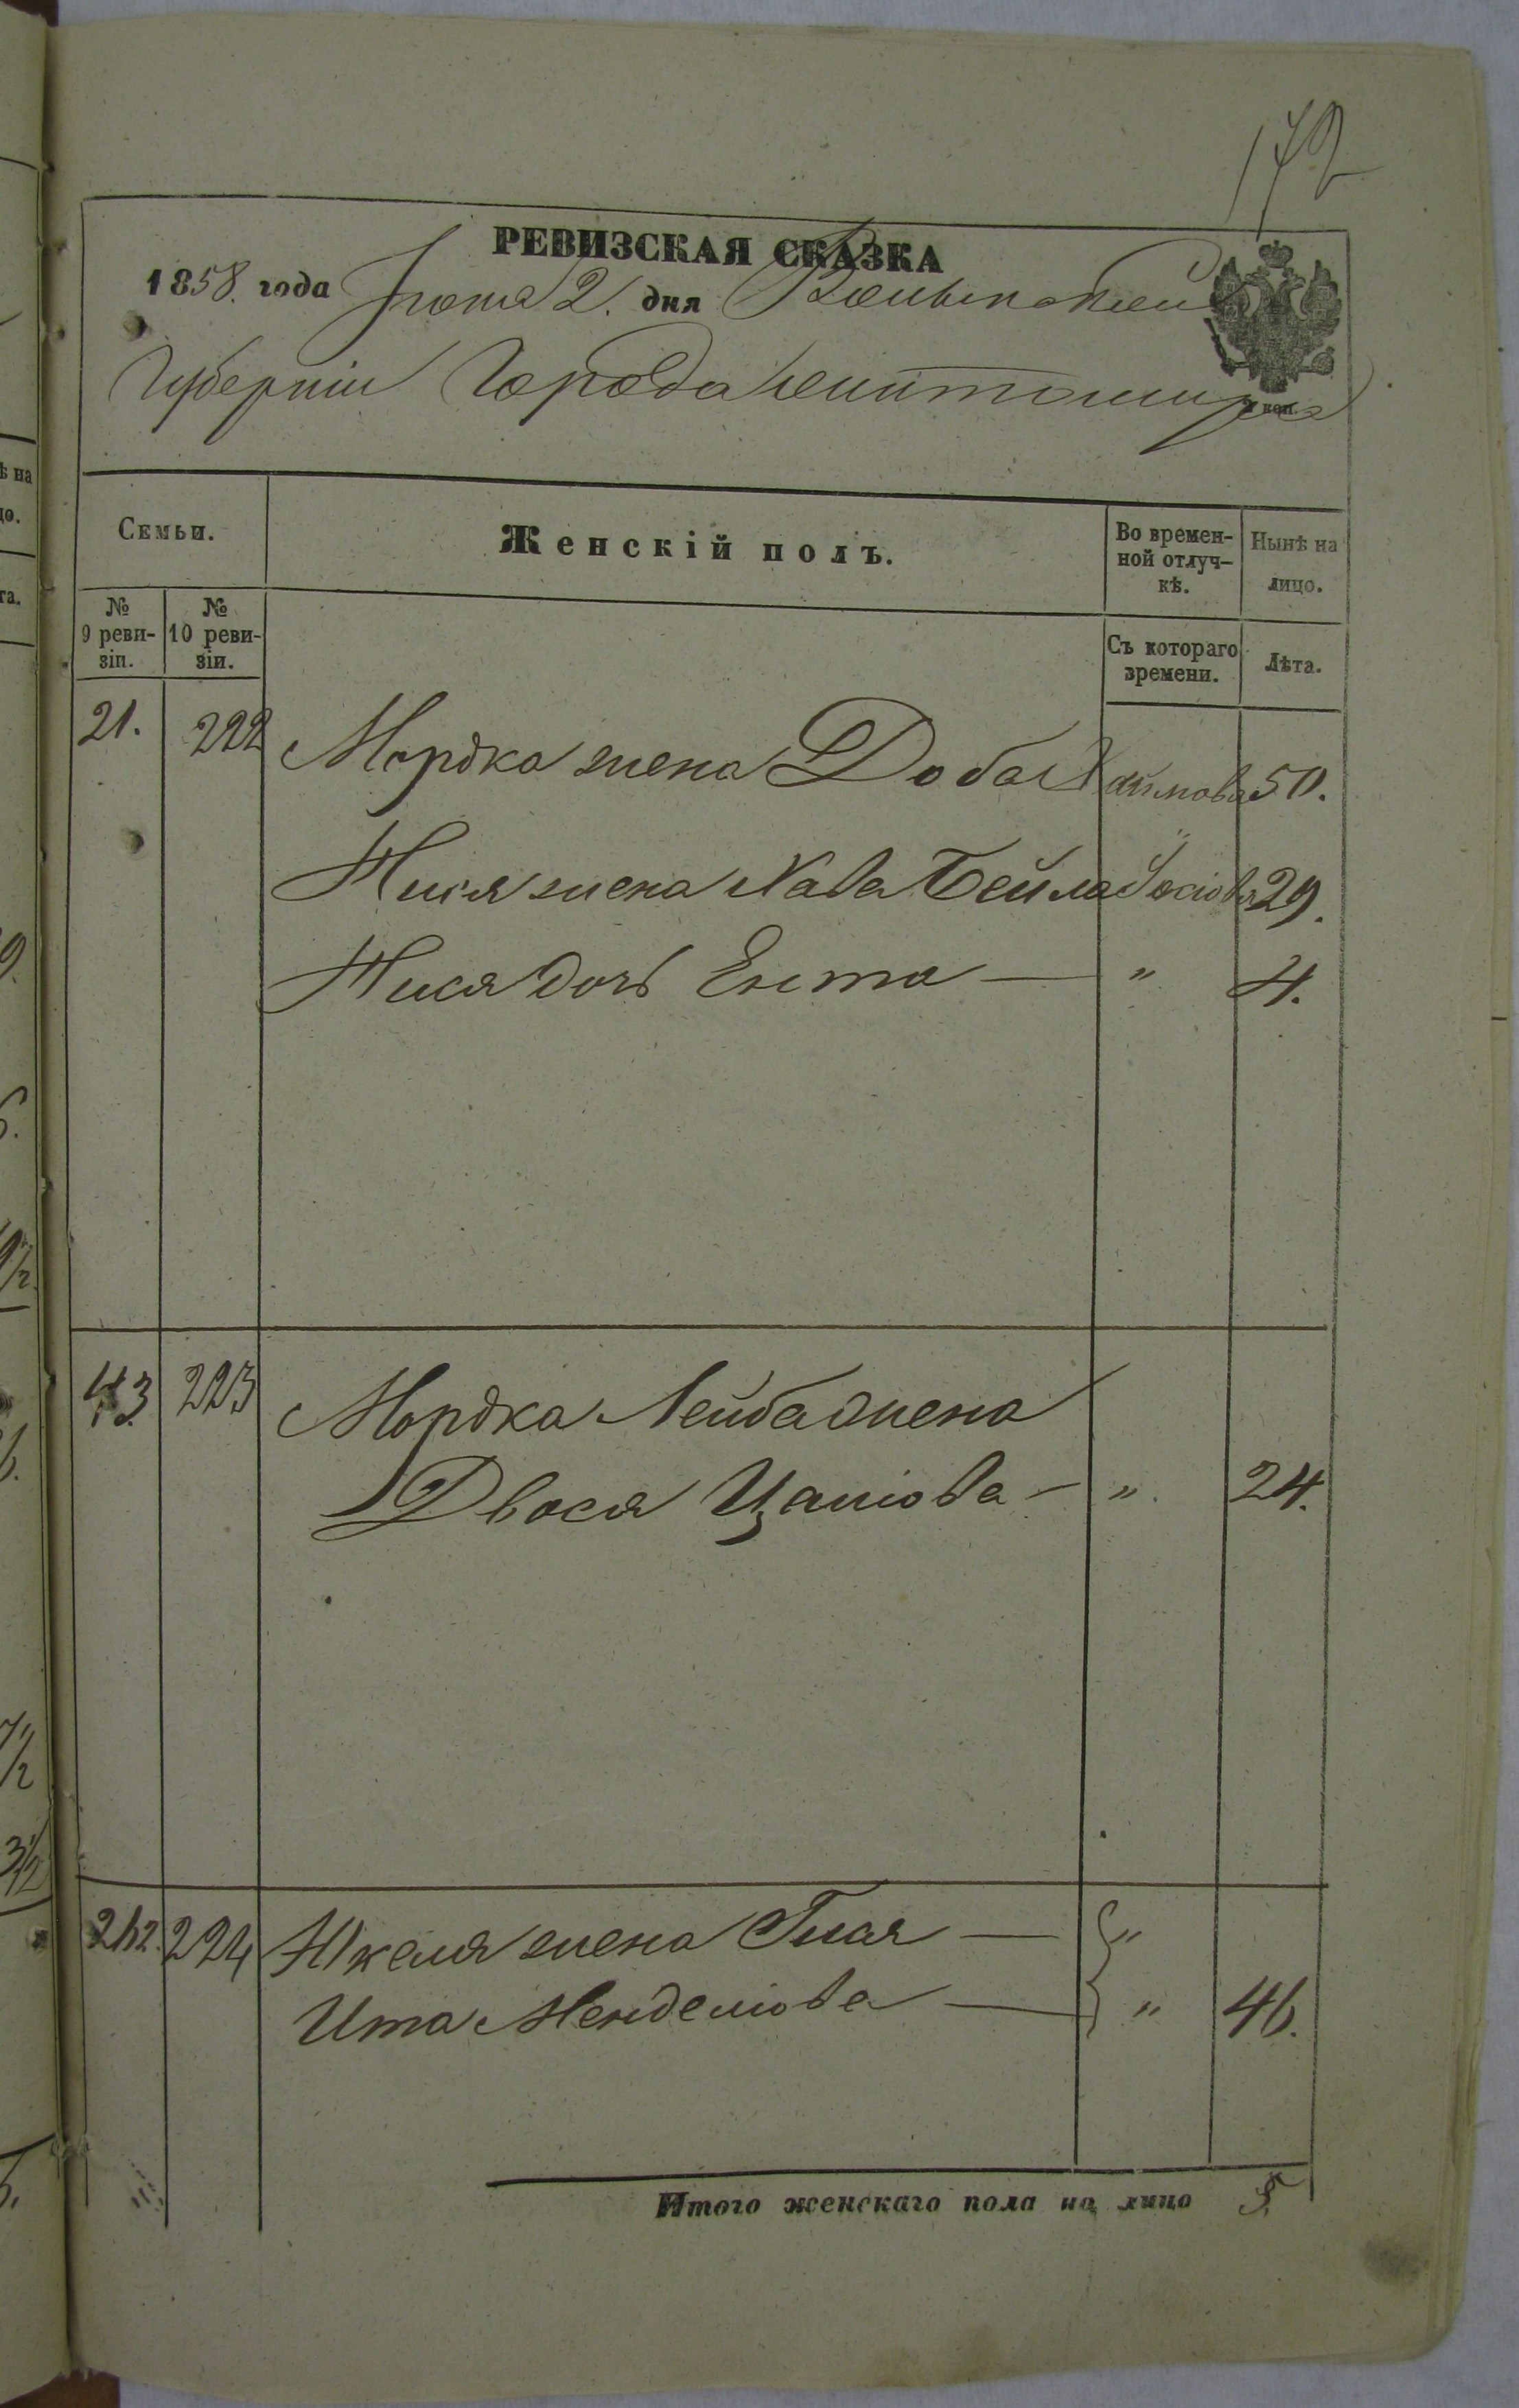 172
РЕВИЗСКАЯ СКАЗКА
1858. года Іюня 2. дня Волынской
Губерніи Города Житомира
Семьи.
Женскій полъ.
Во времен-
ной отлуч-
кѣ.
Нынѣ на
лицо.
№
9 реви-
зіи.
№
10 реви-
зіи.
Съ котораго
времени.
Лѣта.
21. 222 Мордка жена Доба Хаимова 50.
жена Хава Бейла 29.
дочь Ента — " 4.
43 223 Мордка Лейба жена
Двося — ". 24.
262. 224 жена — "
Ита Менделіова — " 46.
Итого женскаго пола на лицо 5.